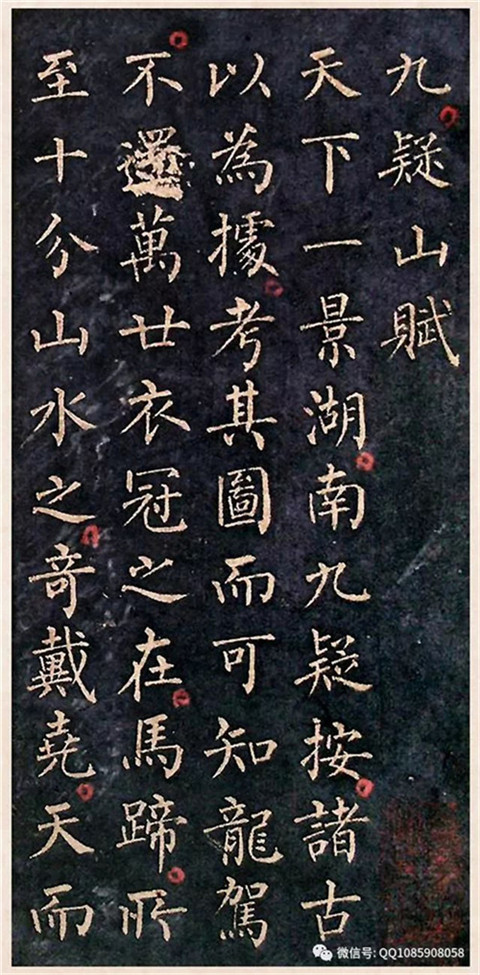 九疑山賦
天下一景湖南九疑按諸古
以為據考其圖而可知龍駕
不還萬廿衣冠之在馬蹄所
至十分山水之奇戴堯天而
微信号: QQ1085908058